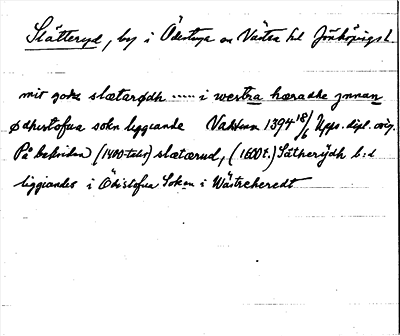 Slätteryd, by i Ödestuga sn Västra hd Jönköpings l.
mit godz slætarødh ..... i westra hæradhe jnnan
ødhistofua sokn liggiande Vadstena 1394 18/6 Upps. dipl. orig.
På baksidan (1400-talet) slætærud, (1600 t.) Sätherÿdh b:d
liggiandes i Ödistofua Soken i Wästrehæredt